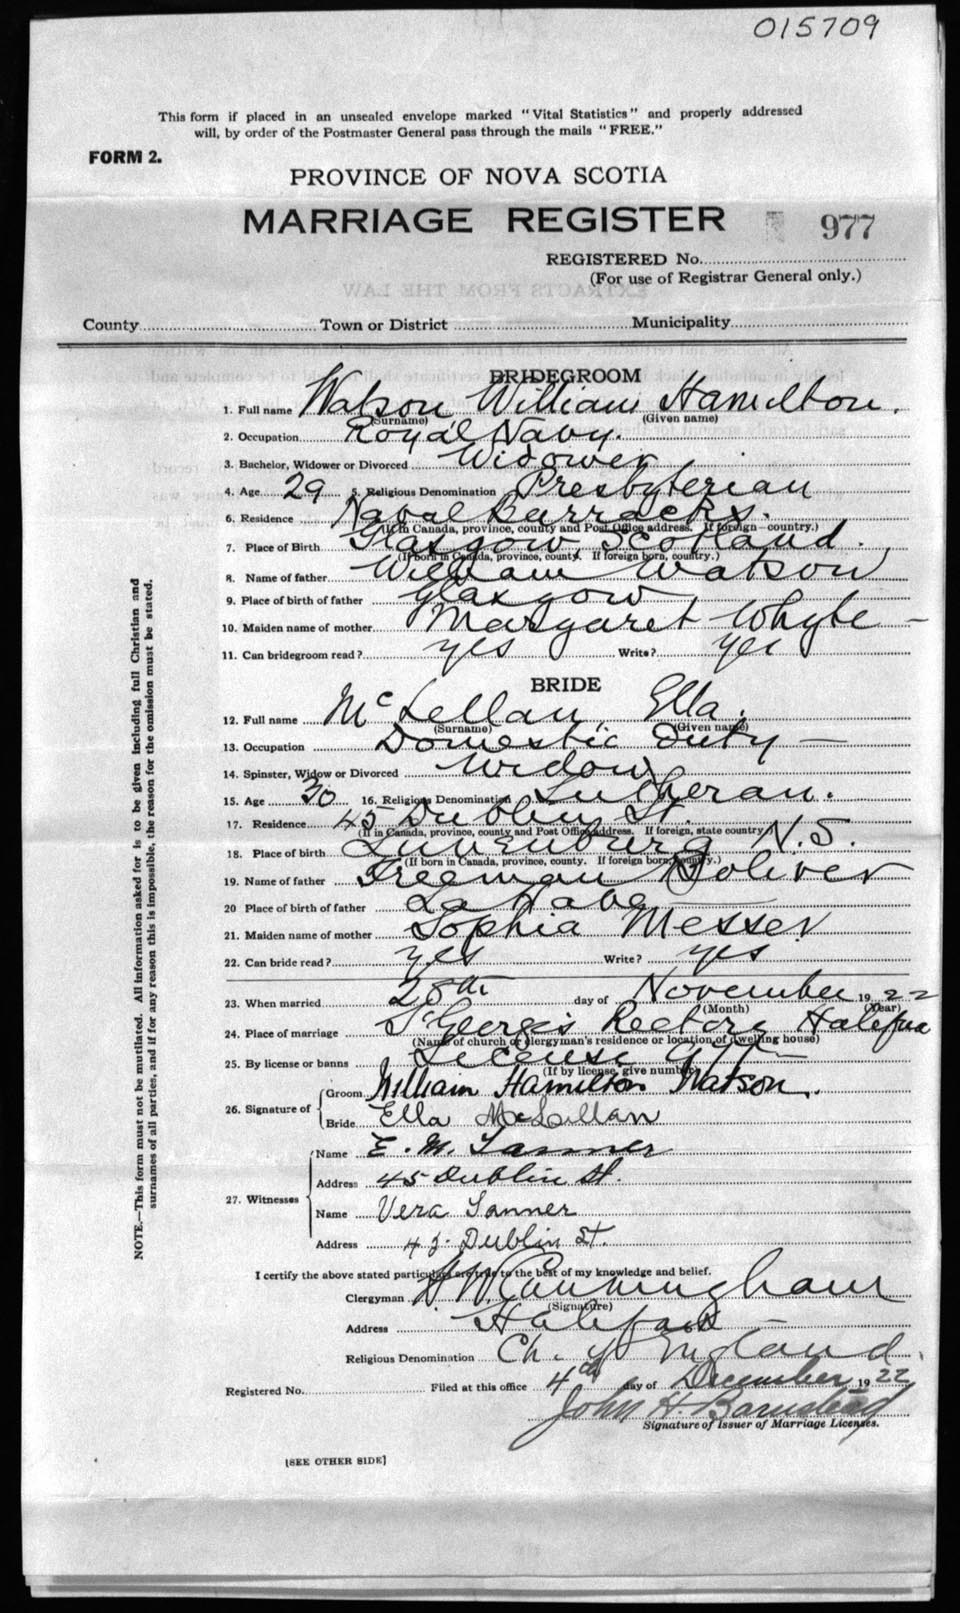 015709
This form if placed in an unsealed envelope marked "Vital Statistics" and properly addressed
will, by order of the Postmaster General pass through the mails "FREE."
FORM 2.
PROVINCE OF NOVA SCOTIA
MARRIAGE REGISTER 977
REGISTERED No.
(For use of Registrar General only.)
EXTRACTS FROM THE LAW
County Town or District Municipality
BRIDEGROOM
1. Full name Watson, William Hamilton.
(Surname) (Given name)
2. Occupation Royal Navy.
3. Bachelor, Widower or Divorced Widower
4. Age 29 5. Religious Denomination Presbyterian
6. Residence Naval Barracks.
(If in Canada, province, county and Post Office address. If foreign country.)
7. Place of Birth Glasgow, Scotland.
(If born in Canada, province, county. If foreign born, country.)
8. Name of father William Watson
9. Place of birth of father Glasgow
10. Maiden name of mother Margaret Whyte –
11. Can bridegroom read? yes Write? yes
BRIDE
12. Full name McLellan, Ella.
(Surname) (Given name)
13. Occupation Domestic Duty –
14. Spinster, Widow or Divorced Widow
15. Age 30 16. Religious Denomination Lutheran.
17. Residence 45 Dublin St.
(If in Canada, province, county and Post Office address. If foreign, state country)
18. Place of birth Lunenburg N.S.
(If born in Canada, province, county. If foreign born, country.)
19. Name of father Freeman Boliver
20 Place of birth of father La Have
21. Maiden name of mother Sophia Messer
22. Can bride read? yes Write? yes
23. When married 28th day of November 1922
(Month) (Year)
24. Place of marriage St George's Rectory Halifax
(Name of church or clergyman's residence or location of dwelling house)
25. By license or banns License
(If by license, give number)
26. Signature of Groom William Hamilton Watson.
Bride Ella McLellan
27. Witnesses Name E. M. Tanner
Address 45 Dublin St.
Name Vera Tanner
Address 45 Dublin St.
I certify the above stated particulars are true to the best of my knowledge and belief.
Clergyman H W Cunningham
(Signature)
Address Halifax –
Religious Denomination Ch. of England.
Registered No. Filed at this office 4th day of December 1922
John H. Barnstead
Signature of Issuer of Marriage Licenses.
[SEE OTHER SIDE]
NOTE.—This form must not be mutilated. All information asked for is to be given including full Christian and
surnames of all parties, and if for any reason this is impossible, the reason for the omission must be stated.